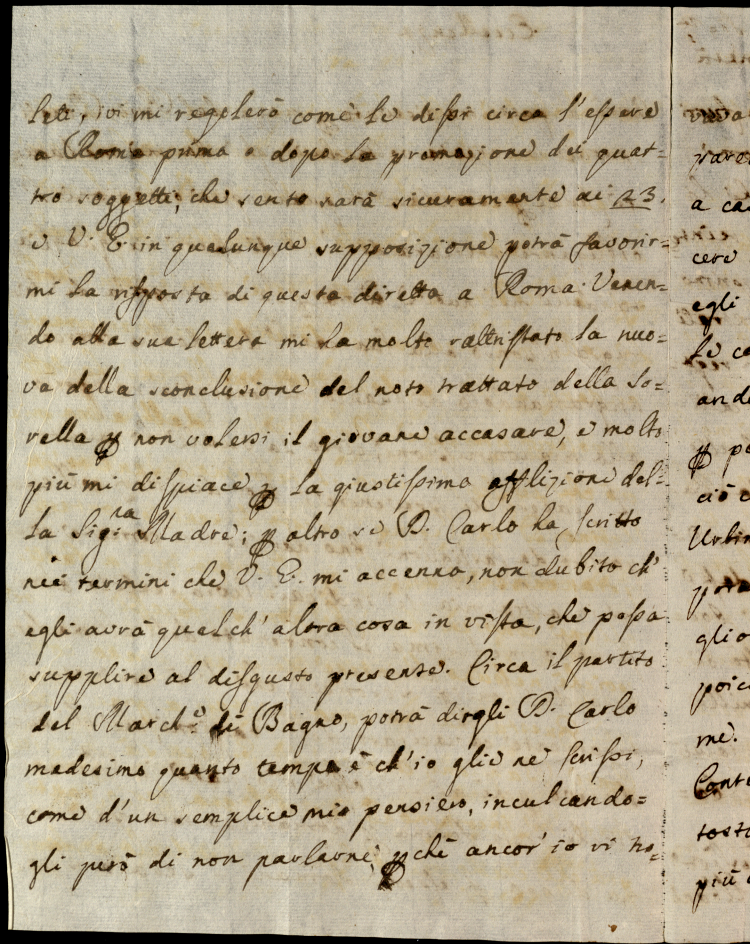 leti, ivi mi regolerò come le dissi circa l'essere
a Roma prima o dopo la promozione dei quat=
tro soggetti, che sento sarà sicuramente ai 23.
e V. E. in qualunque supposizione potrà favorir=
mi la risposta di questa diretta a Roma. Venen=
do alla sua lettera mi ha molto rattristato la nuo=
va della sconclusione del noto trattato della So=
rella ꝑ non volersi il giovane accasare, e molto
più mi dispiace ꝑ la giustissima afflizione del=
la Sig.ra Madre; ꝑ altro se D. Carlo ha scritto
nei termini che V. E. mi accenna, non dubito ch'
egli avrà qualch' altra cosa in vista, che possa
supplire al disgusto presente. Circa il partito
del March.e di Bagno, potrà dirgli D. Carlo
medesimo quanto tempo è ch'io glie ne scrissi,
come d'un semplice mio pensiero, inculcando=
gli però di non parlarne, ꝑchè ancor' io vi ho=
a ca
cere
egli
le co
and
ꝑ po
ciò c
Urbin
potra
gli o
poic
me.
Conte
tosto
più